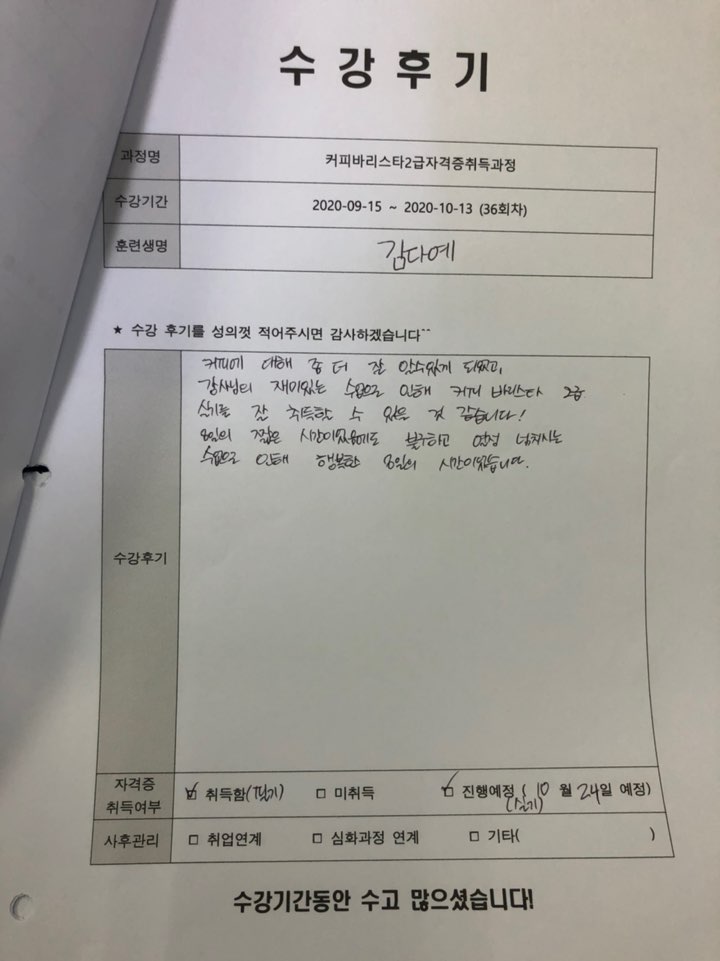 수강후기
과정명 커피바리스타2급자격증취득과정
수강기간 2020-09-15 ~ 2020-10-13 (36회차)
훈련생명 김다예
★ 수강 후기를 성의껏 적어주시면 감사하겠습니다^^
커피에 대해 좀 더 잘 알수있게 되었고,
강사님의 재미있는 수업으로 인해 커피 바리스타 2급
실기를 잘 취득할 수 있을 것 같습니다!
8일의 짧은 시간이었음에도 불구하고 열정 넘치시는
수업으로 인해 행복한 8일의 시간이었습니다.
수강후기
자격증 취득여부 ☑ 취득함(필기) □ 미취득 ☑ 진행예정 ( 10 월 24일 예정)
(실기)
사후관리 □ 취업연계 □ 심화과정 연계 □ 기타( )
수강기간동안 수고 많으셨습니다!